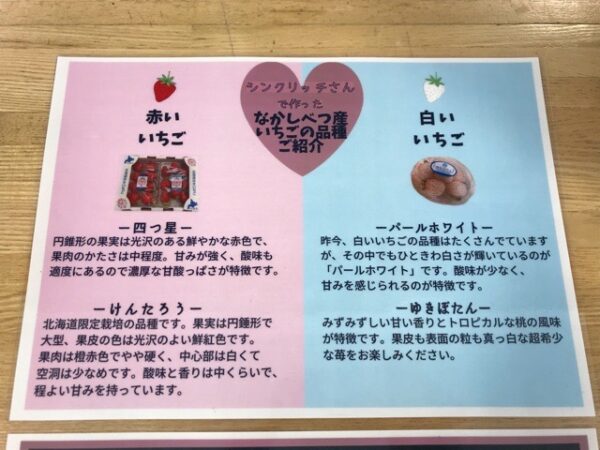 シンクリッチさん
で作った
なかしべつ産
いちごの品種
ご紹介
赤い
いちご
ー四つ星ー
円錐形の果実は光沢のある鮮やかな赤色で、
果肉のかたさは中程度。甘みが強く、酸味も
適度にあるので濃厚な甘酸っぱさが特徴です。
ーけんたろうー
北海道限定栽培の品種です。果実は円錐形で
大型、果皮の色は光沢のよい鮮紅色です。
果肉は橙赤色でやや硬く、中心部は白くて
空洞は少なめです。酸味と香りは中くらいで、
程よい甘みを持っています。
白い
いちご
ーパールホワイトー
昨今、白いいちごの品種はたくさんでています
が、その中でもひときわ白さが輝いているのが
「パールホワイト」です。酸味が少なく、
甘みを感じられるのが特徴です。
ーゆきぼたんー
みずみずしい甘い香りとトロピカルな桃の風味
が特徴です。果皮も表面の粒も真っ白な超希少
な苺をお楽しみください。